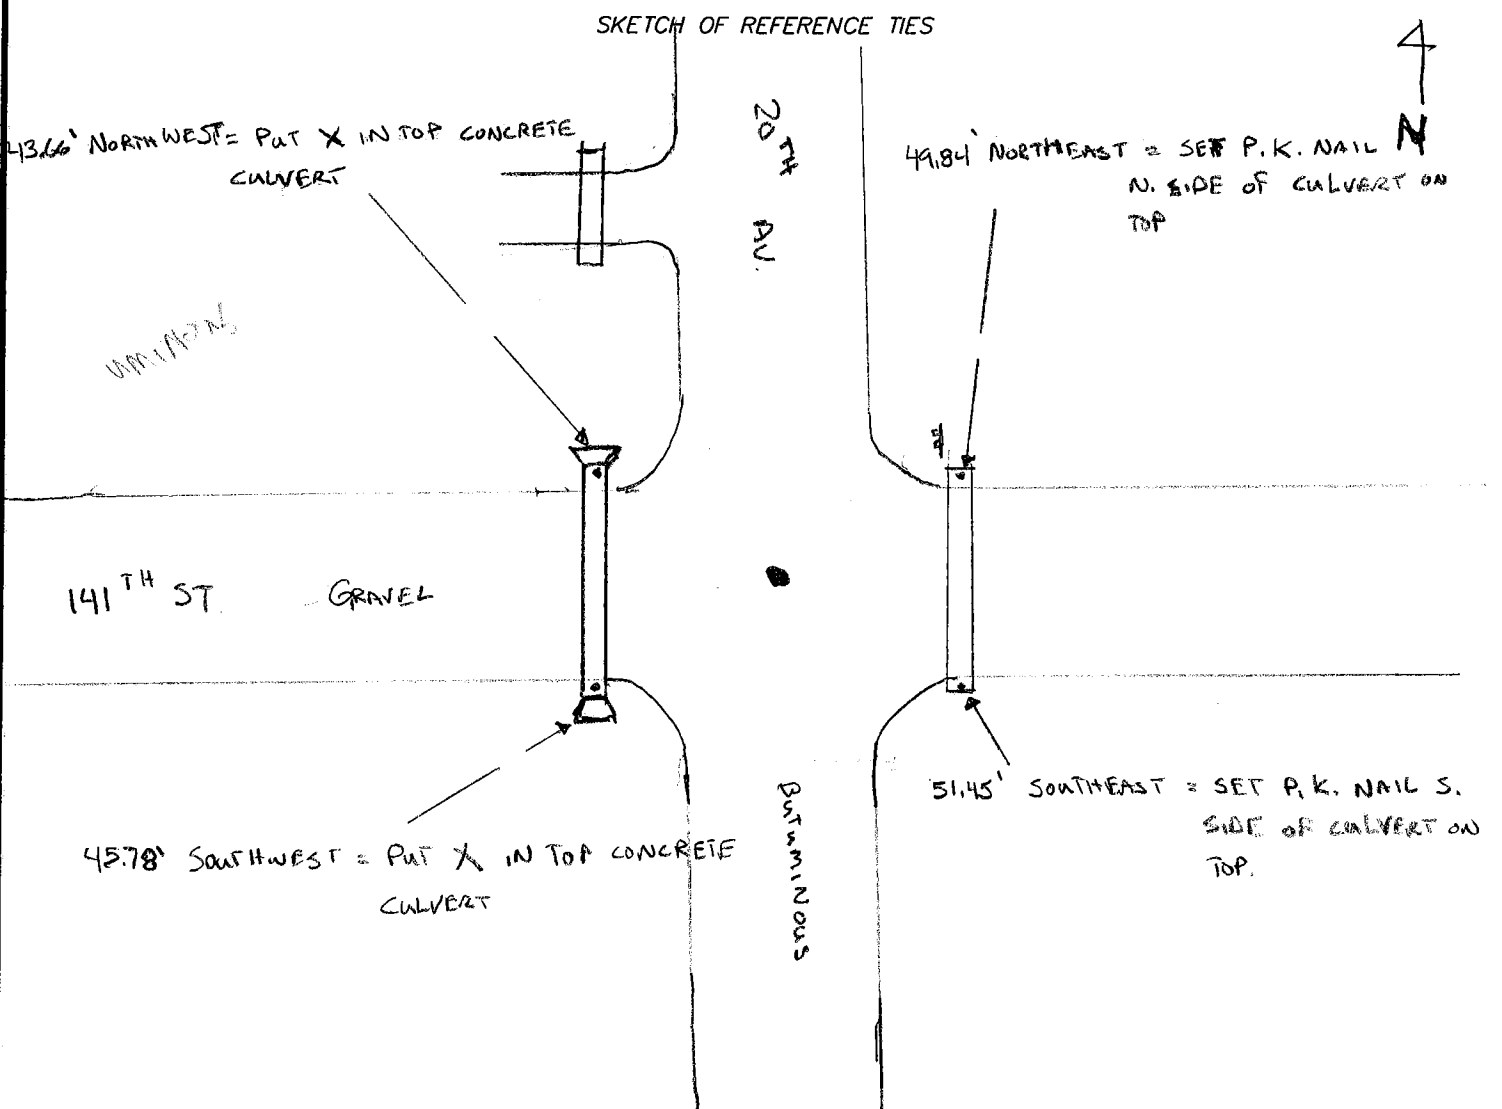 SKETCH OF REFERENCE TIES
N
20TH AV.
43.66' NORTHWEST = PUT X IN TOP CONCRETE
CULVERT
49.84' NORTHEAST = SET P.K. NAIL
N. SIDE OF CULVERT ON
TOP
141TH ST. GRAVEL
45.78' SOUTHWEST = PUT X IN TOP CONCRETE
CULVERT
BUTUMINOUS
51.45' SOUTHEAST = SET P.K. NAIL S.
SIDE OF CULVERT ON
TOP.